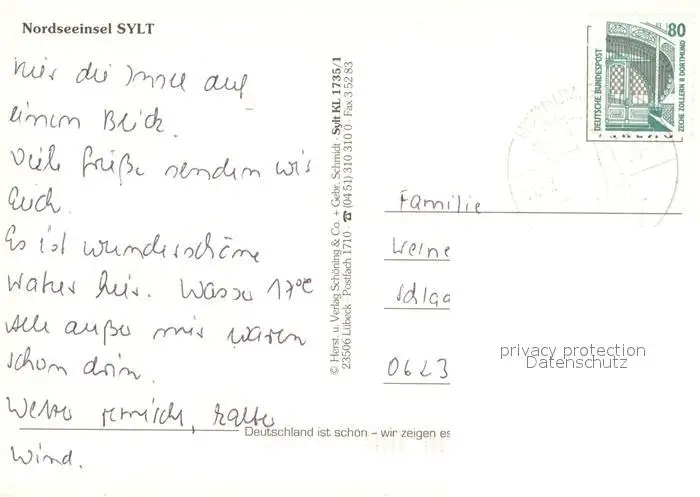 Nordseeinsel SYLT
Hier die Insel auf
einen Blick.
Viele Grüße senden wir
Euch.
Es ist wunderschöne
hier. Wasser 17°C
Alle außer mir waren
schon drin.
Wetter, kalter
Wind.
© Herst. u. Verlag Schöning & Co. + Gebr. Schmidt · Sylt KL 1735/1
23506 Lübeck · Postfach 1710 · ☎ (04 51) 310 310 0 · Fax 3 52 83
DEUTSCHE BUNDESPOST
80
ZECHE ZOLLERN II DORTMUND
Familie
Weine
Schla
0623
privacy protection
Datenschutz
Deutschland ist schön – wir zeigen es